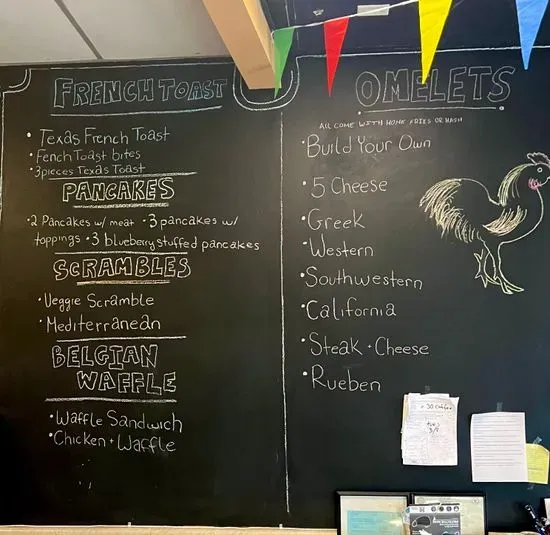 FRENCH TOAST
• Texas French Toast
• Fench Toast bites
• 3 pieces Texas Toast
PANCAKES
• 2 Pancakes w/ meat • 3 pancakes w/
toppings • 3 blueberry stuffed pancakes
SCRAMBLES
• Veggie Scramble
• Mediterranean
BELGIAN
WAFFLE
• Waffle Sandwich
• Chicken + Waffle
OMELETS
ALL COME WITH HOME FRIES OR HASH
• Build Your Own
• 5 Cheese
• Greek
• Western
• Southwestern
• California
• Steak + Cheese
• Rueben